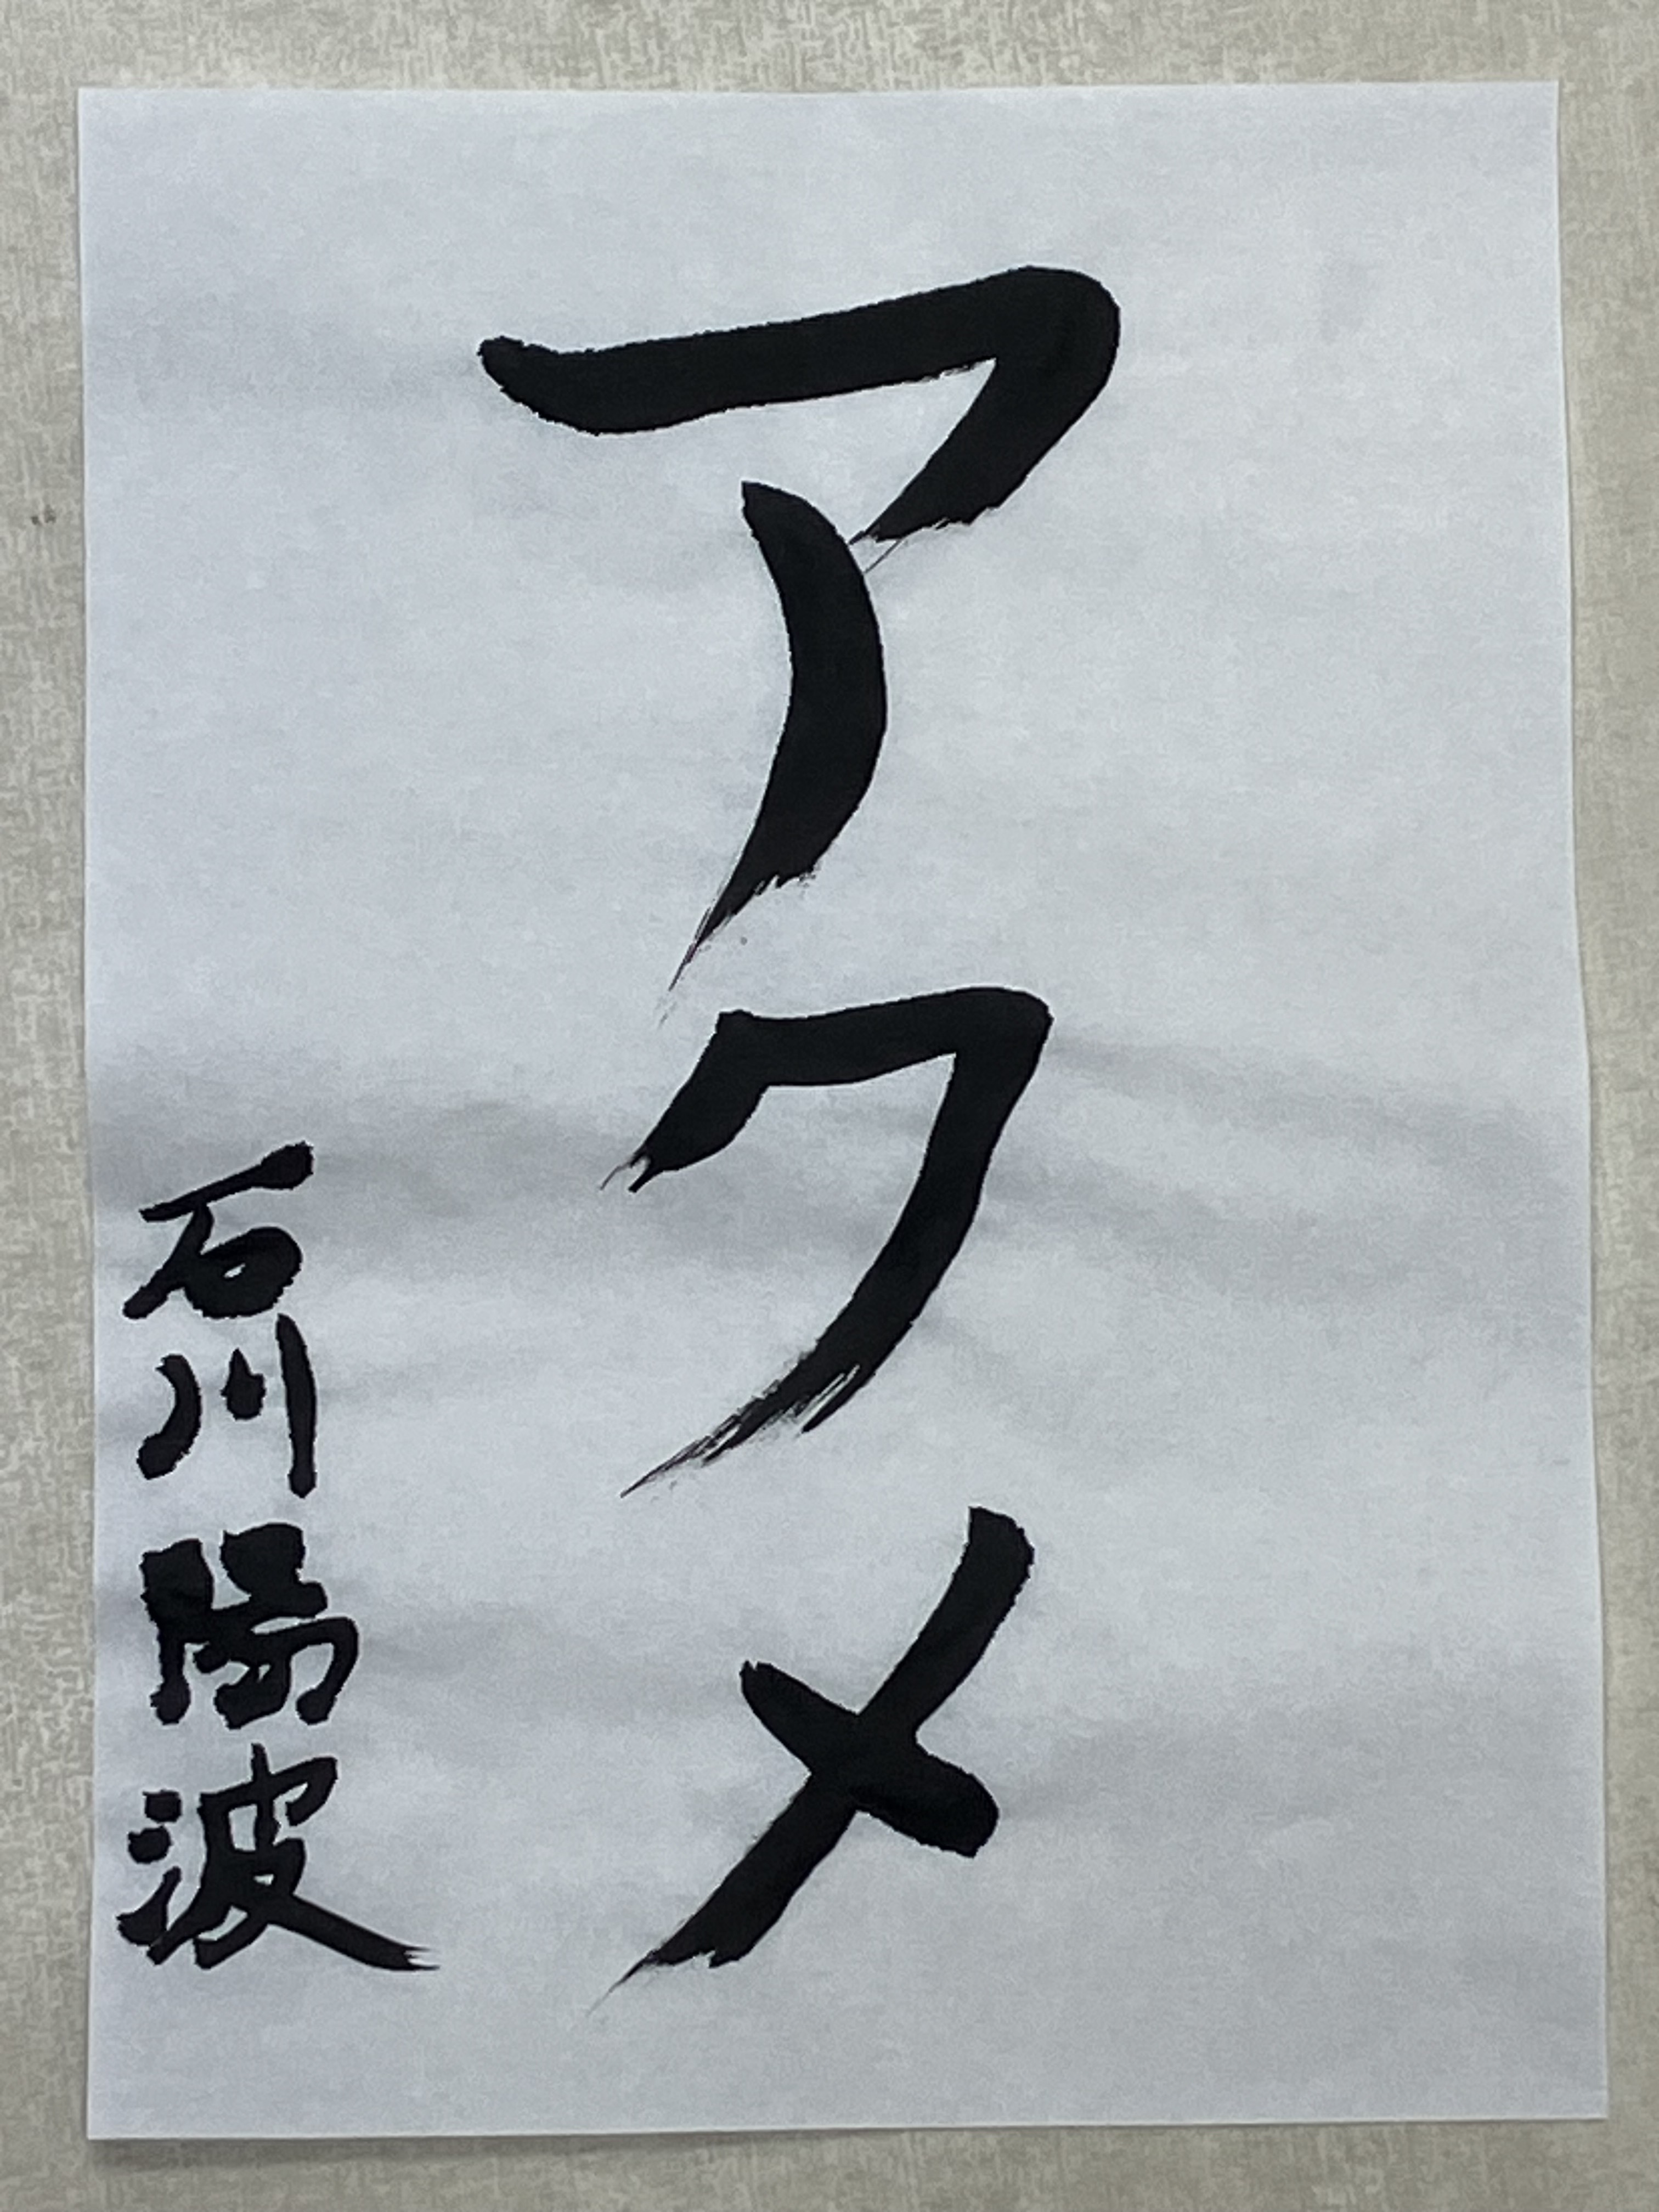 アクメ
石川陽波